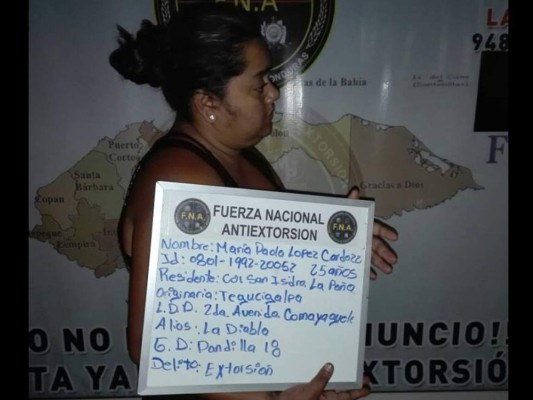 F.N.A
LA
948
as de la Bahía
Puerto
Cortés
Colón
Santa
Bárbara
Copan
Lempira
Gracias a Dios
EXTORSION
F
NO
ANUNCIO!!
YA
EXTORSIÓ
F.N.A.
FUERZA NACIONAL
ANTIEXTORSION
F.N.A.
Nombre: Maria Paola Lopez Cardoza
Id: 0801-1992-20052 25 años
Residente: Col San Isidro La Peña
Originaria: Tegucigalpa
L.D.D. 2da. Avenida Comayaguela
Alias: La Diabla
E.D: Pandilla 18
Delito: Extorsión